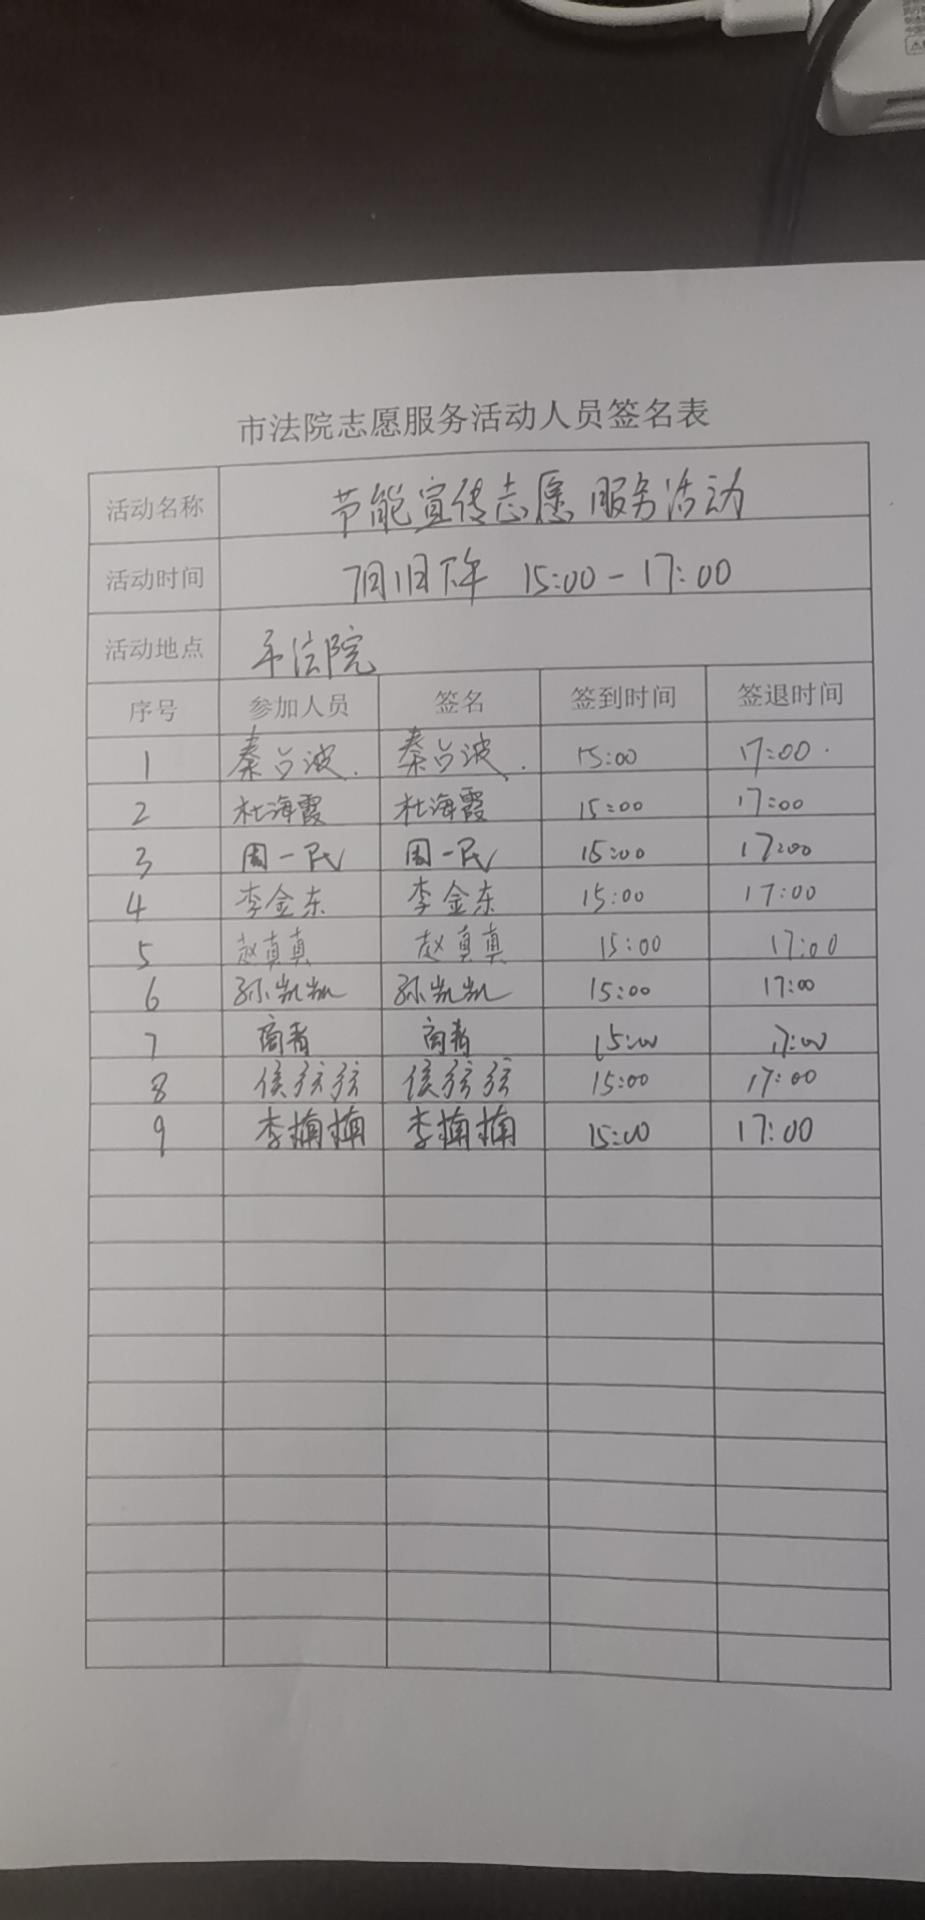 市法院志愿服务活动人员签名表
活动名称 节能宣传志愿服务活动
活动时间 7月1日下午 15:00-17:00
活动地点 市法院
序号 参加人员 签名 签到时间 签退时间
1 秦占波. 秦占波. 15:00 17:00.
2 杜海霞 杜海霞 15:00 17:00
3 周一民 周一民 15:00 17:00
4 李金东 李金东 15:00 17:00
5 赵真真 赵真真 15:00 17:00
6 孙凯凯 孙凯凯 15:00 17:00
7 商青 商青 15:00 17:00
8 侯弦弦 侯弦弦 15:00 17:00
9 李楠楠 李楠楠 15:00 17:00